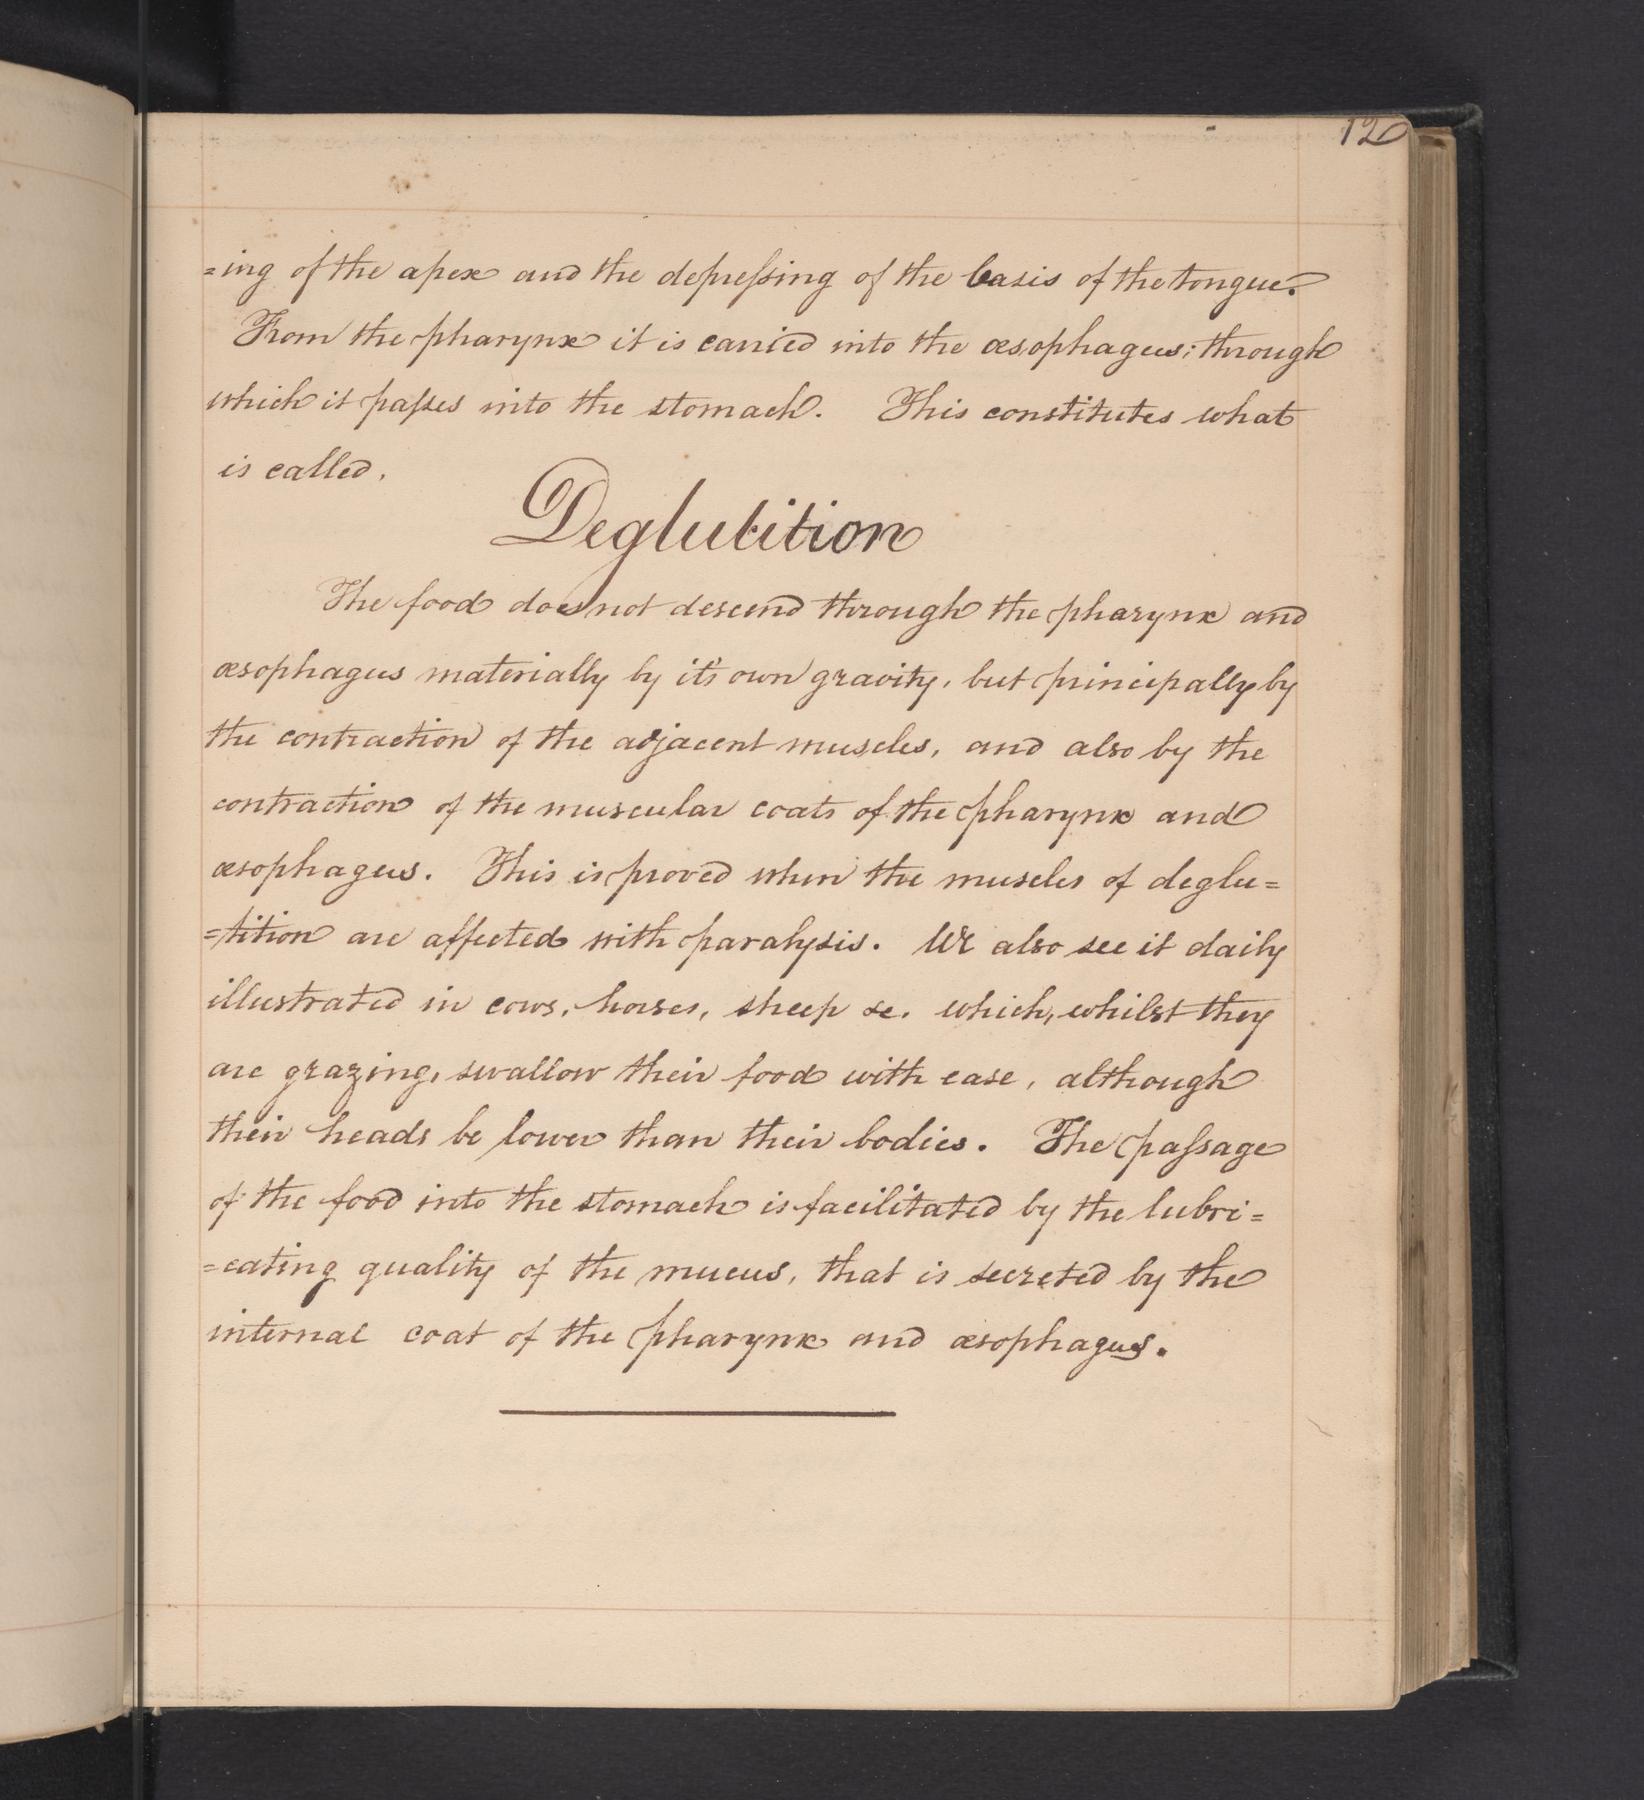 12
=ing of the apex and the depreſsing of the basis of the tongue.
From the pharynx it is carried into the œsophagus; through
which it paſses into the stomach. This constitutes what
is called.
Deglutition
The food does not descend through the pharynx and
œsophagus materially by it's own gravity, but principally by
the contraction of the adjacent muscles, and also by the
contraction of the muscular coats of the pharynx and
œsophagus. This is proved when the muscles of deglu=
=tition are affected with paralysis. We also see it daily
illustrated in cows, horses, sheep &c. which, whilst they
are grazing, swallow their food with ease, although
their heads be lower than their bodies. The paſsage
of the food into the stomach is facilitated by the lubri=
=cating quality of the mucus, that is secreted by the
internal coat of the pharynx and œsophagus.